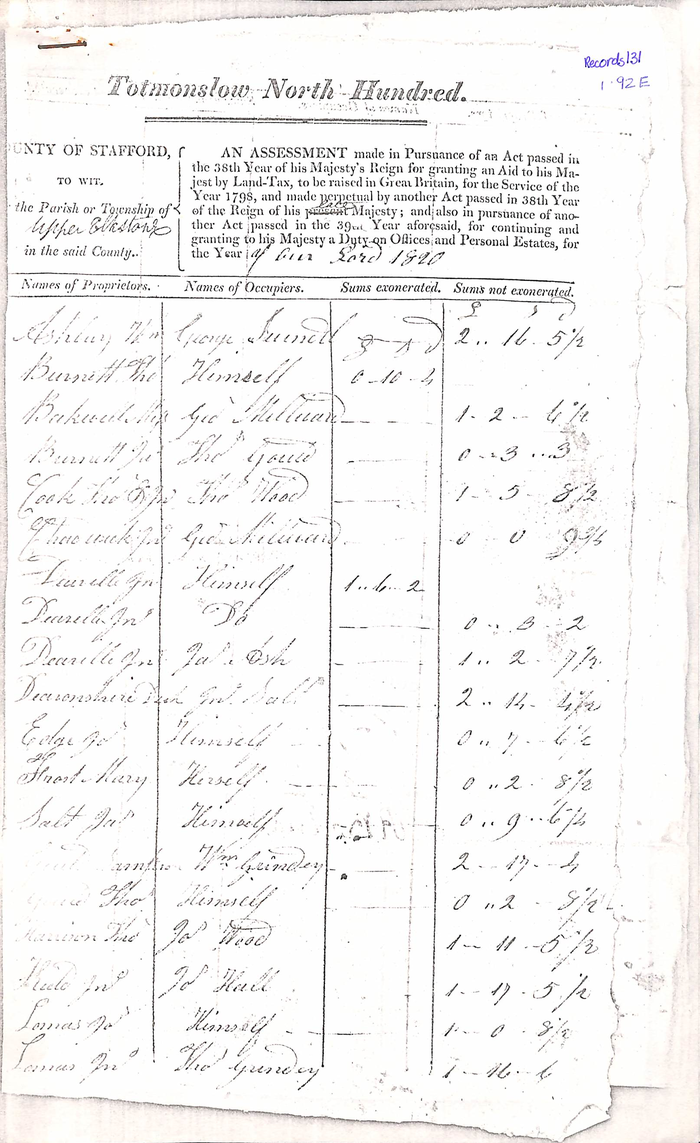 Records/31
1.92E
Totmonslow North Hundred.
UNTY OF STAFFORD,
TO WIT.
the Parish or Township of
Upper Elkstone
in the said County.
AN ASSESSMENT made in Pursuance of an Act passed in
the 38th Year of his Majesty's Reign for granting an Aid to his Ma-
jesty by Land-Tax, to be raised in Great Britain, for the Service of the
Year 1798, and made perpetual by another Act passed in 38th Year
of the Reign of his late present Majesty; and also in pursuance of ano-
ther Act passed in the 39th Year aforesaid, for continuing and
granting to his Majesty a Duty on Offices and Personal Estates, for
the Year of our Lord 1820
Names of Proprietors. Names of Occupiers. Sums exonerated. Sums not exonerated.
£ s d
George 2 .. 16 - 5½
£ s d
Burnett Tho Himself 0 - 10 - 4
Geo Millward 1 - 2 - 6½
Burnett Jn Tho Gould 0 - 3 .. 3
Cook Tho & Jn Tho Wood 1 - 5 - 8½
Chadwick Jn Geo Millward 0 0 9¾
Dearelle Jn Himself 1 - 6 - 2
Dearelle Jn Do 0 .. 3 - 2
Dearelle Jn Ja Ash 1 .. 2 - 7½
Deavonshire Duk Jn Salt 2 .. 14 - 4½
Edge Jo Himself 0 .. 7 - 6½
Frost Mary Herself 0 .. 2 8½
Salt Ja Himself 0 .. 9 - 6¼
Wm Grindey 2 - 17 - 4
Gould Tho Himself 0 .. 2 - 8½
Harrison Tho Jo Wood 1 - 11 - 5½
Jn Jo Hall 1 - 17 - 5½
Lomas Jo Himself 1 - 0 - 8½
Lomas Jn Tho Grindey 1 - 16 - 6